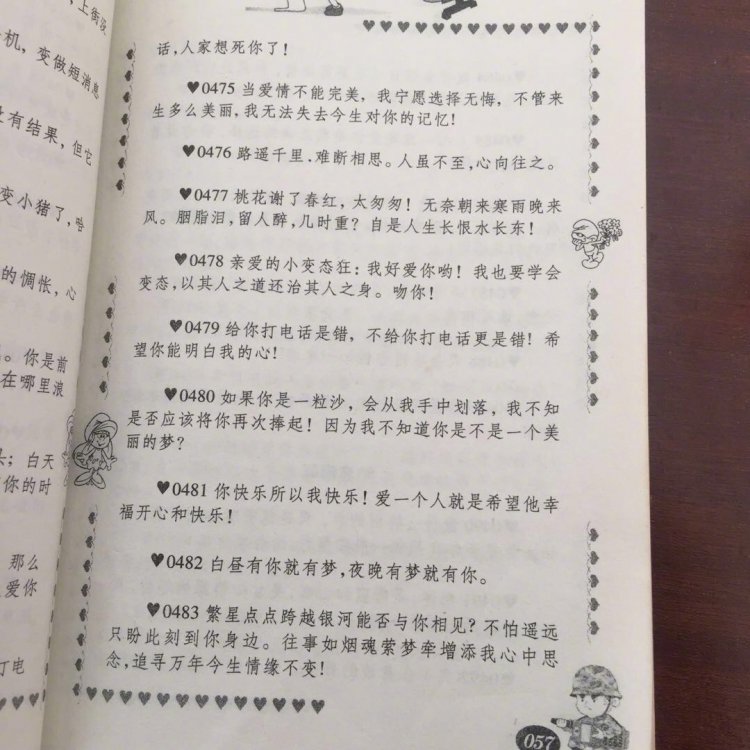 上街没
机，变做短消息
没有结果，但它
变小猪了，哈
的惆怅，心
。你是前
在哪里浪
头；白天
你的时
那么
爱你
打电
话，人家想死你了！
♥0475 当爱情不能完美，我宁愿选择无悔，不管来
生多么美丽，我无法失去今生对你的记忆！
♥0476 路遥千里，难断相思。人虽不至，心向往之。
♥0477 桃花谢了春红，太匆匆！无奈朝来寒雨晚来
风。胭脂泪，留人醉，几时重？自是人生长恨水长东！
♥0478 亲爱的小变态狂：我好爱你哟！我也要学会
变态，以其人之道还治其人之身。吻你！
♥0479 给你打电话是错，不给你打电话更是错！希
望你能明白我的心！
♥0480 如果你是一粒沙，会从我手中划落，我不知
是否应该将你再次捧起！因为我不知道你是不是一个美
丽的梦？
♥0481 你快乐所以我快乐！爱一个人就是希望他幸
福开心和快乐！
♥0482 白昼有你就有梦，夜晚有梦就有你。
♥0483 繁星点点跨越银河能否与你相见？不怕遥远
只盼此刻到你身边。往事如烟魂萦梦牵增添我心中思
念，追寻万年今生情缘不变！
057